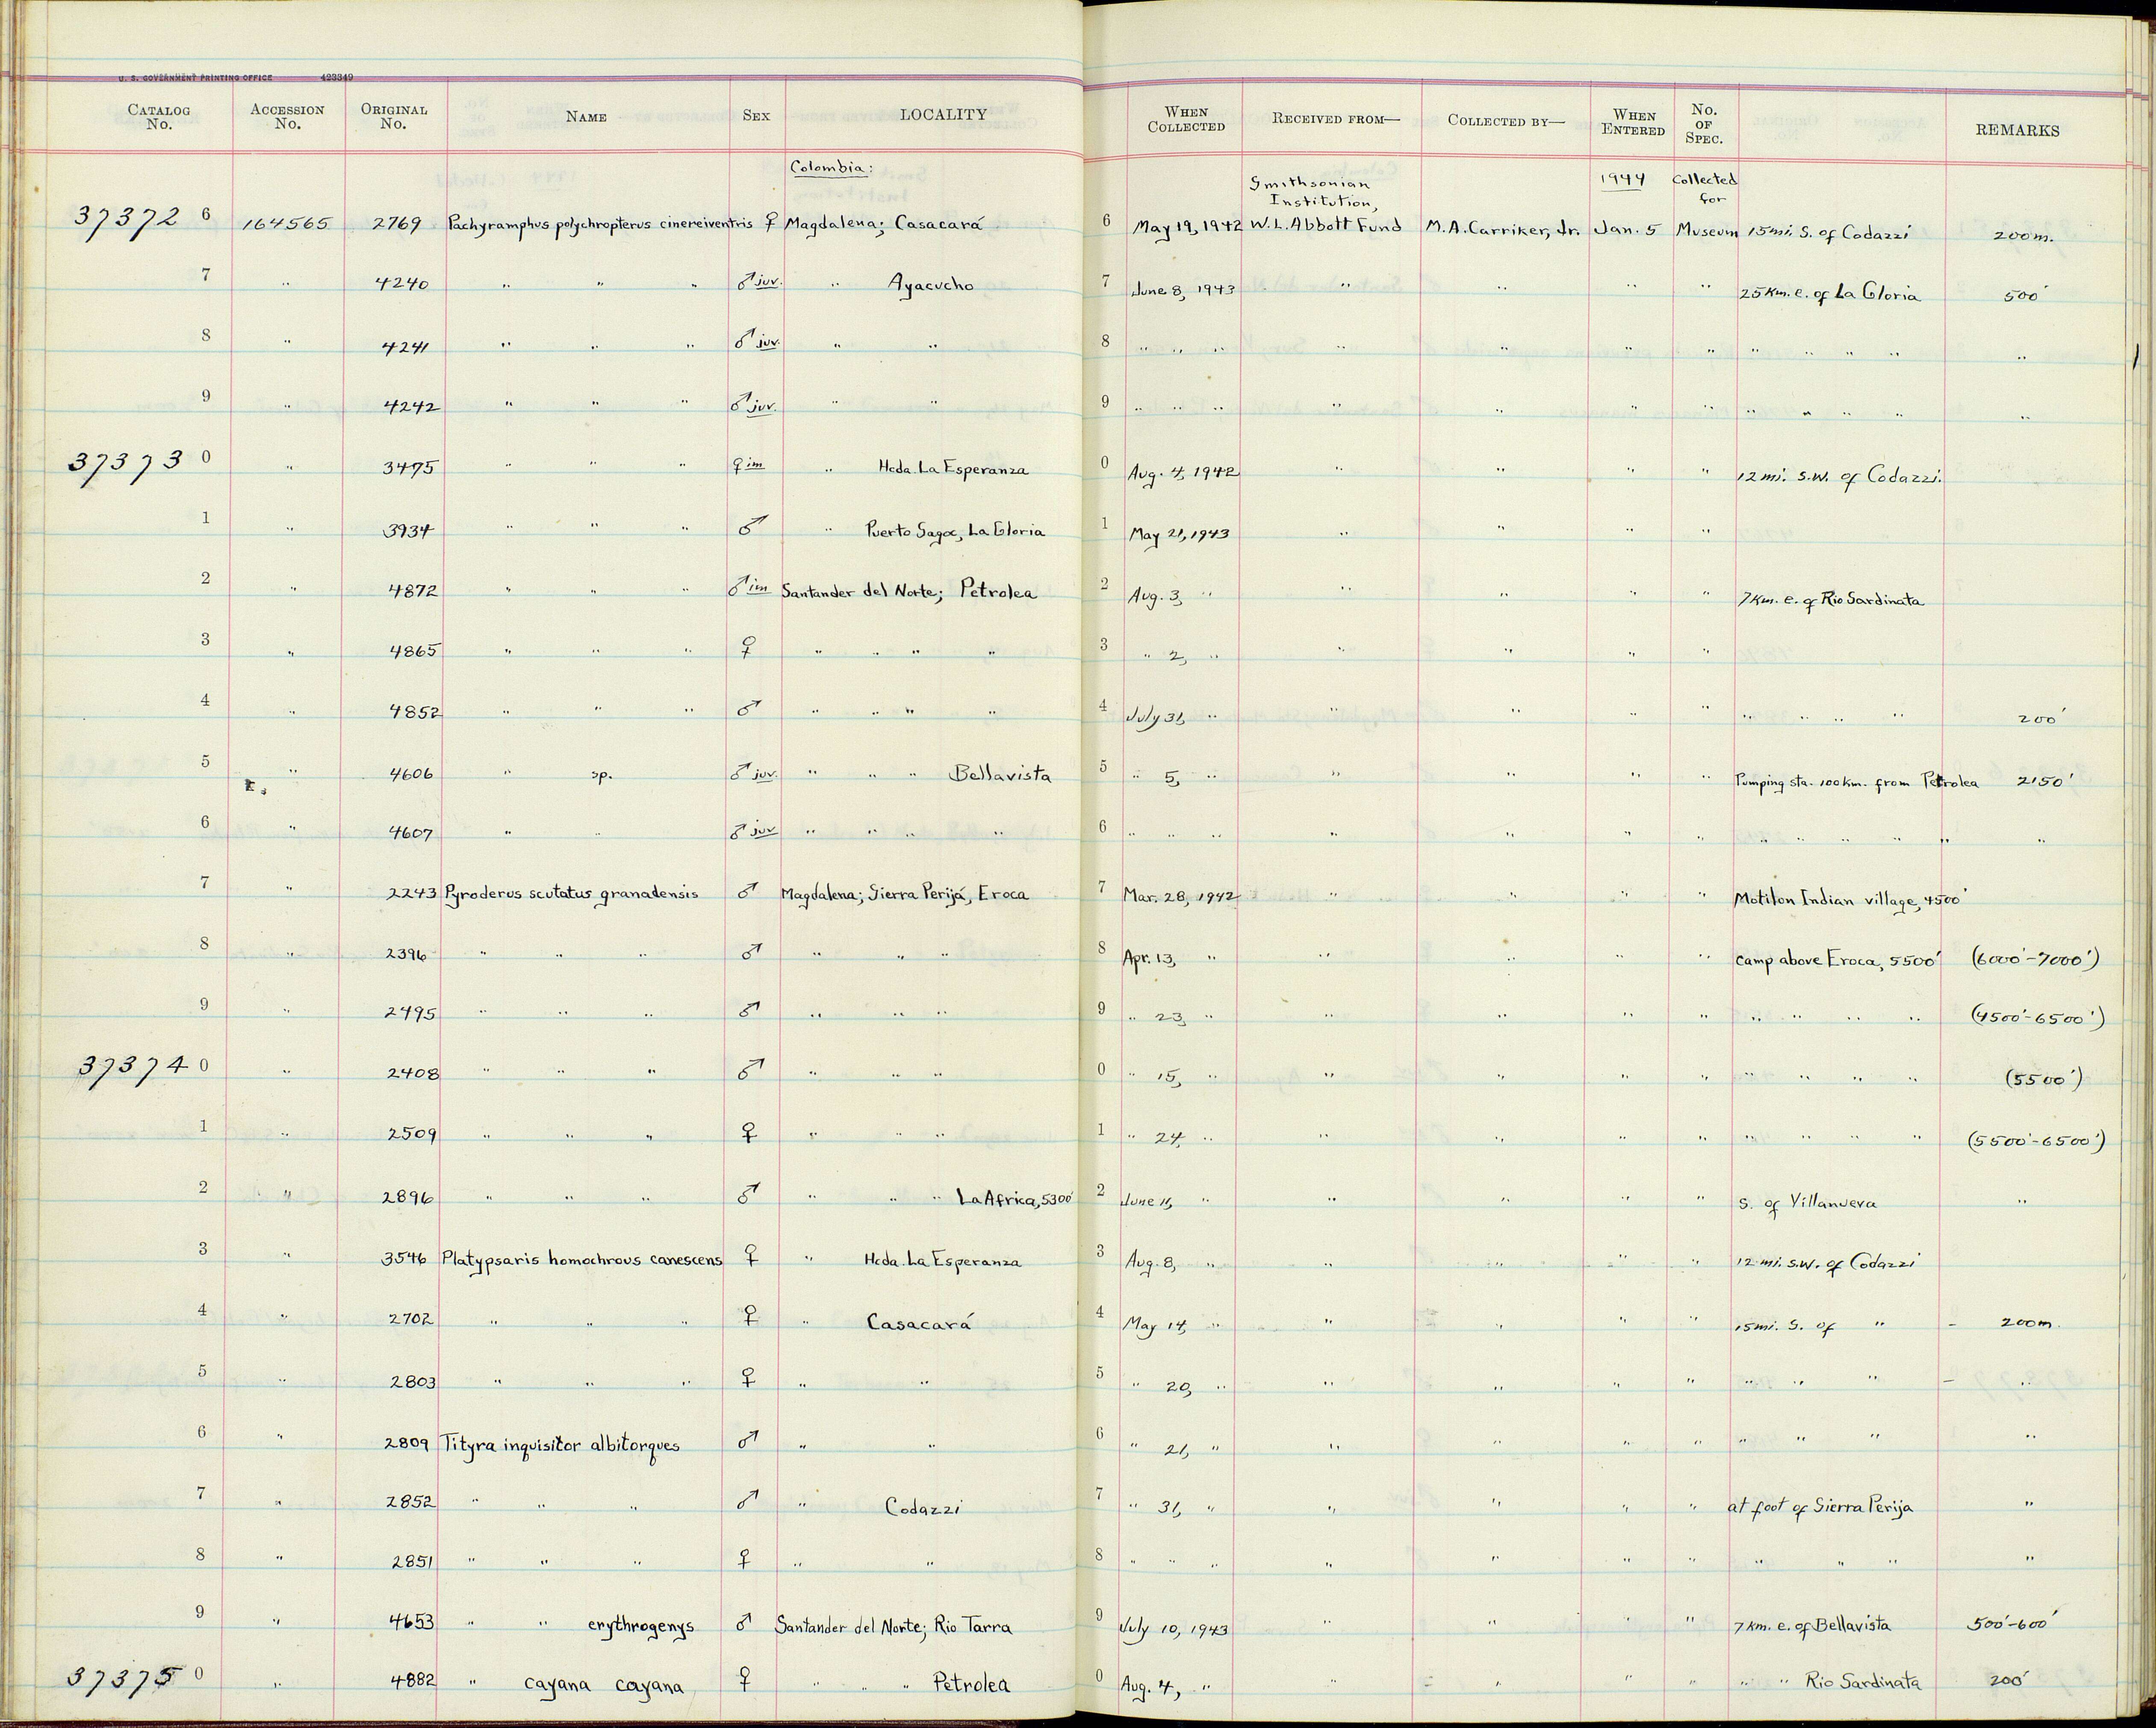 U. S. GOVERNMENT PRINTING OFFICE 423349
CATALOG No. ACCESSION No. ORIGINAL No. NAME SEX LOCALITY WHEN COLLECTED RECEIVED FROM— COLLECTED BY— WHEN ENTERED No. OF SPEC. REMARKS
Colombia: Smithsonian Institution, 1944 Collected for
37372 6 164565 2769 Pachyramphus polychropterus cinereiventris ♀ Magdalena; Casacará 6 May 19, 1942 W. L. Abbott Fund M. A. Carriker, Jr. Jan. 5 Museum 15 mi. S. of Codazzi 200 m.
7 " 4240 " " " ♂ juv. " Ayacucho 7 June 8, 1943 " " " " 25 Km. e. of La Gloria 500'
8 " 4241 " " " ♂ juv. " " 8 " " " " " " " " " " " "
9 " 4242 " " " ♂ juv. " " 9 " " " " " " " " " " " "
37373 0 " 3475 " " " ♀ im " Hcda. La Esperanza 0 Aug. 4, 1942 " " " " 12 mi. s.w. of Codazzi.
1 " 3934 " " " ♂ " Puerto Sagoc, La Gloria 1 May 21, 1943 " " " "
2 " 4872 " " " ♂ im Santander del Norte; Petrolea 2 Aug. 3, " " " " " 7 Km. e. of Rio Sardinata
3 " 4865 " " " ♀ " " " " 3 " 2, " " " " "
4 " 4852 " " " ♂ " " " " 4 July 31, " " " " " " " " " 200'
5 " 4606 " sp. ♂ juv. " " " Bellavista 5 " 5, " " " " " Pumping sta. 100 km. from Petrolea 2150'
6 " 4607 " " ♂ juv " " " " 6 " " " " " " " " " " " " "
7 " 2243 Pyroderus scutatus granadensis ♂ Magdalena; Sierra Perijá, Eroca 7 Mar. 28, 1942 " " " " Motilon Indian village, 4500'
8 " 2396 " " " ♂ " " " 8 Apr. 13, " " " " " camp above Eroca, 5500' (6000'-7000')
9 " 2495 " " " ♂ " " " 9 " 23, " " " " " " " " " (4500'-6500')
37374 0 " 2408 " " " ♂ " " " 0 " 15, " " " " " " " " " (5500')
1 " 2509 " " " ♀ " " " 1 " 24, " " " " " " " " " (5500'-6500')
2 " 2896 " " " ♂ " " " La Africa, 5300' 2 June 11, " " " " " S. of Villanueva "
3 " 3546 Platypsaris homochrous canescens ♀ " Hcda. La Esperanza 3 Aug. 8, " " " " " 12 mi. s.w. of Codazzi
4 " 2702 " " " ♀ " Casacará 4 May 14, " " " " " 15 mi. S. of " - 200 m.
5 " 2803 " " " ♀ " " 5 " 20, " " " " " " " " - "
6 " 2809 Tityra inquisitor albitorques ♂ " " 6 " 21, " " " " " " " " "
7 " 2852 " " " ♂ " Codazzi 7 " 31, " " " " " at foot of Sierra Perija "
8 " 2851 " " " ♀ " " 8 " " " " " " " " " " "
9 " 4653 " " erythrogenys ♂ Santander del Norte; Rio Tarra 9 July 10, 1943 " " " " 7 km. e. of Bellavista 500'-600'
37375 0 " 4882 " cayana cayana ♀ " " " Petrolea 0 Aug. 4, " " " " " " " Rio Sardinata 200'